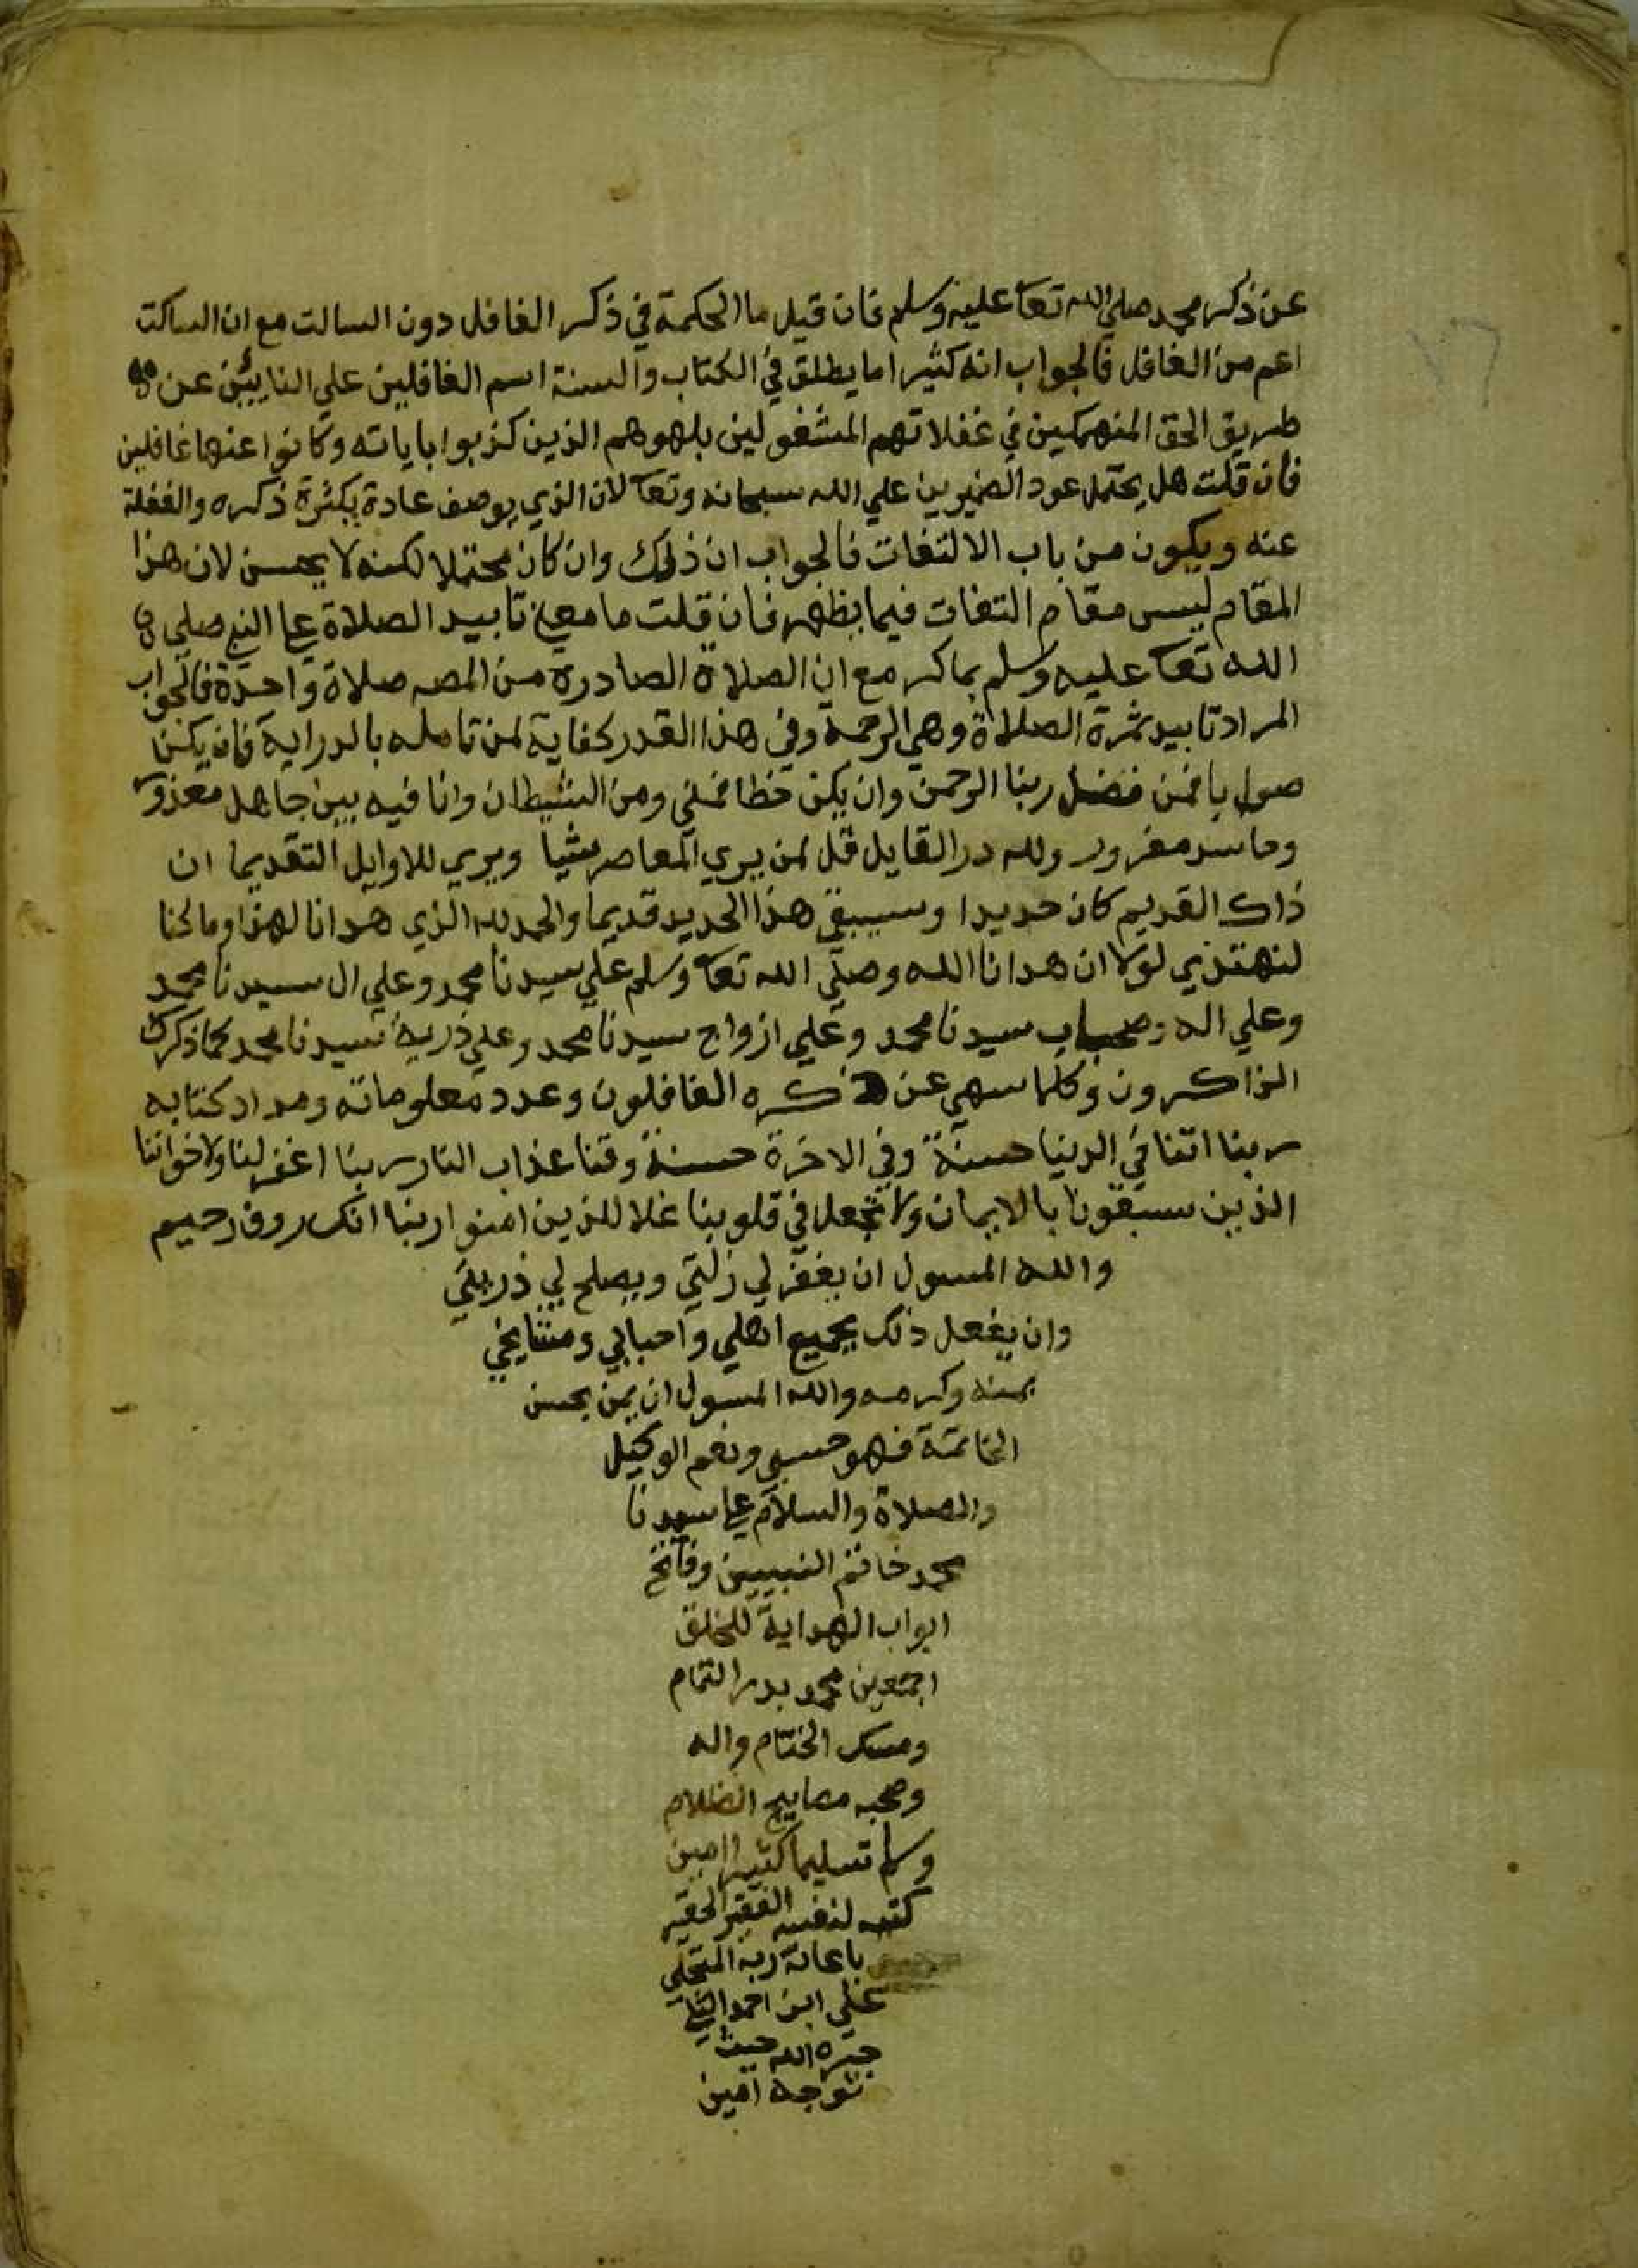 عن ذكر محمد صلى الله تعا عليه وسلم فان قيل ما الحكمة في ذكر الغافل دون السالت مع ان الساكت
اعم من الغافل فالجواب انه كثيرا ما يطلق في الكتاب والسنة اسم الغافلين علي النايين عن
طريق الحق المنهمكين في غفلاتهم المشغولين بلهوهم الذين كذبوا باياته وكانوا عنها غافلين
فان قلت هل يحتمل عود الضميرين علي الله سبحانه وتعا لان الذي يوصف عادة بكثرة ذكره والغفلة
عنه ويكون من باب الالتفات فالجواب ان ذلك وان كان محتملا لكنه لا يحسن لان هذا
المقام ليس مقام التفات فيما يظهر فان قلت ما معني تابيد الصلاة علي النبي صلي
الله تعا عليه وسلم بما كر مع ان الصلاة الصادرة من المصه صلاة واحدة فالجواب
المراد تابيد ثمرة الصلاة وهي الرحمة وفي هذا القدر كفاية لمن تامله بالدراية فان يكن
صوابا فمن فضل ربنا الرحمن وان يكن خطا فمني ومن الشيطان وانا فيه بين جاهل معذور
وحاسد مغرور ولله در القايل قل لمن يري المعاصر شيا ويري للاوايل التقديما ان
ذاك القديم كان حديدا وسيبقي هذا الحديد قديما والحمد لله الذي هدانا لهذا وما كنا
لنهتدي لولا ان هدانا الله وصلي الله تعا وسلم علي سيدنا محمد وعلي ال سيدنا محمد
وعلي اله وصحاب سيدنا محمد وعلي ازواج سيدنا محمد وعلي ذرية سيدنا محمد كلما ذكرك
الذاكرون وكلما سهي عن ذكره الغافلون وعدد معلوماته ومداد كتابه
ربنا اتنا في الدنيا حسنة وفي الاخرة حسنة وقنا عذاب النار ربنا اغفر لنا ولاخواننا
الذين سبقونا بالايمان ولا تجعل في قلوبنا غلا للذين امنوا ربنا انك روف رحيم
والله المسول ان يغفر لي زلتي ويصلح لي ذريتي
وان يفعل ذلك بجميع اهلي واحبابي ومشايخي
بمنه وكرمه والله المسول ان يمن بحسن
الخاتمة فهو حسبي ونعم الوكيل
والصلاة والسلام علي سيدنا
محمد خاتم النبيين وفاتح
ابواب الهداية للخلق
اجمعين محمد بدر التمام
ومسك الختام واله
وصحبه مصابيح الظلام
وسلم تسليما كثيرا امين
كتبه لنفسه الفقير الحقير
باعانة ربه المتجلي
علي ابن احمد
جبره الله حيث
توجه امين